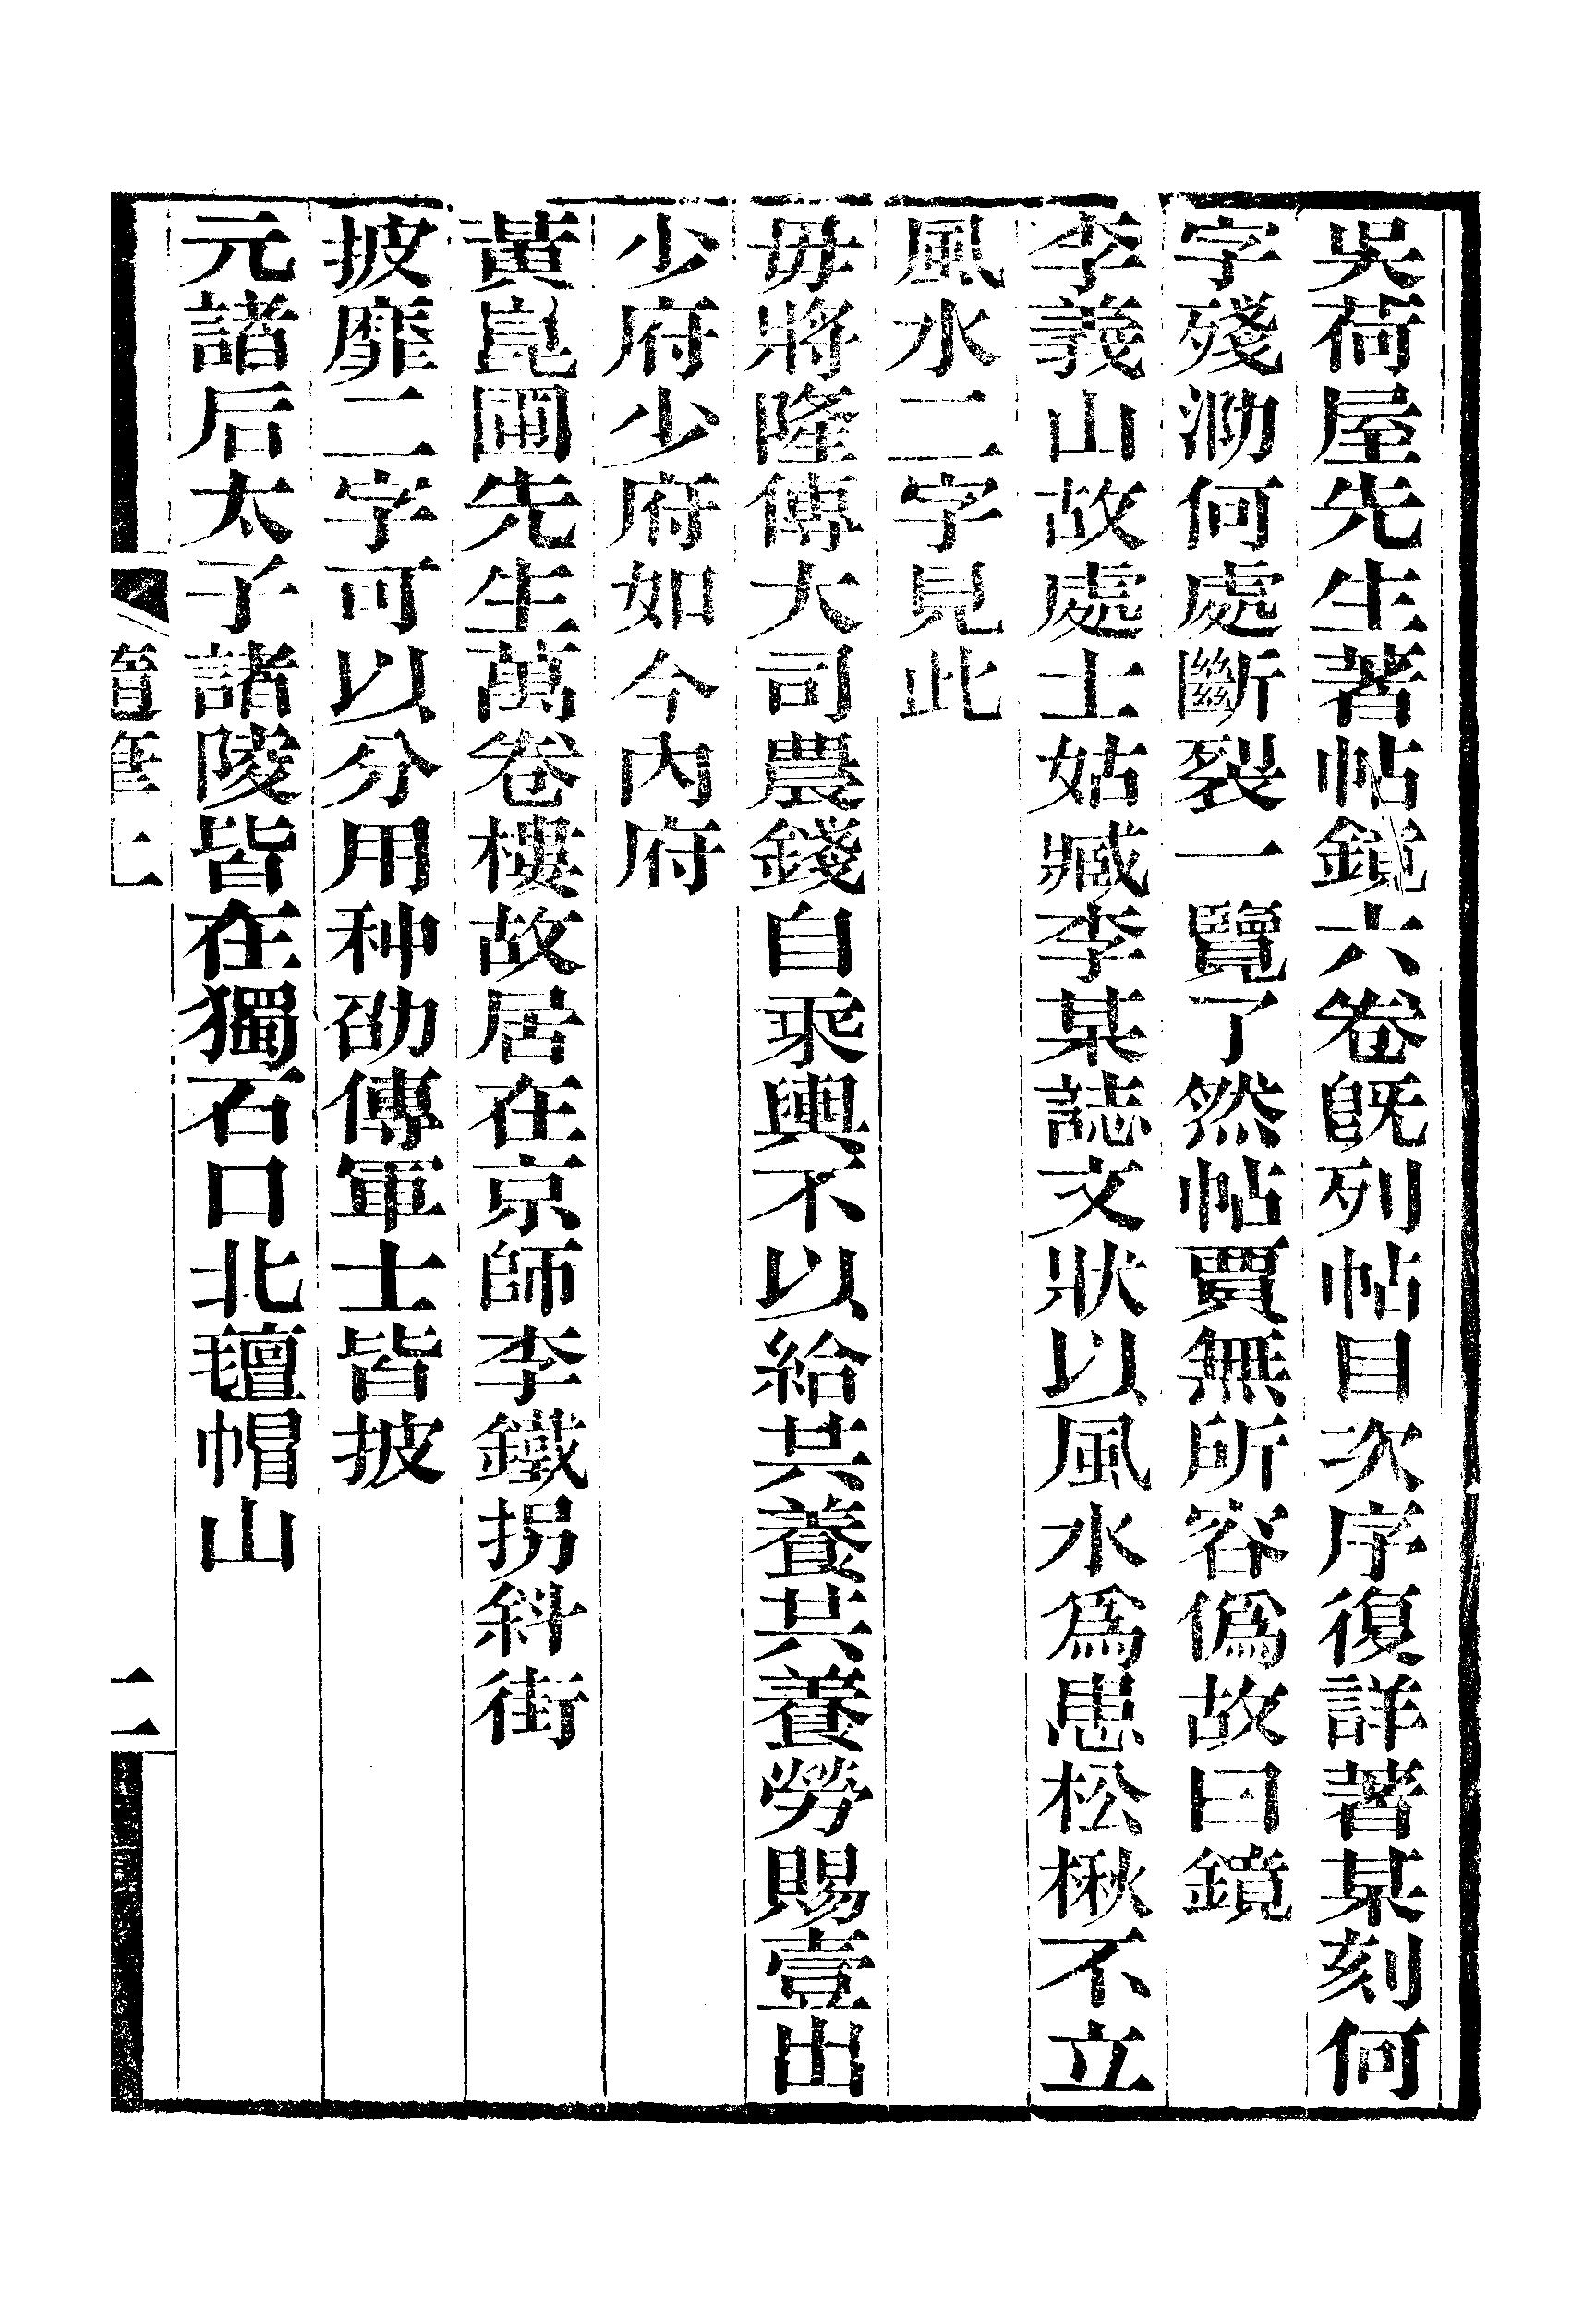 吳荷屋先生著帖鏡六卷旣列帖目次序復詳著某刻何
字殘泐何處斷裂一覽了然帖賈無所容僞故曰鏡
李義山故處士姑臧李某誌文狀以風水爲患松楸不立
風水二字見此
毋將隆傳大司農錢自乘輿不以給共養共養勞賜壹出
少府少府如今內府
黃崑圃先生萬卷樓故居在京師李鐵拐斜街
披靡二字可以分用种劭傳軍士皆披
元諸后太子諸陵皆在獨石口北氊帽山
隨筆上
二